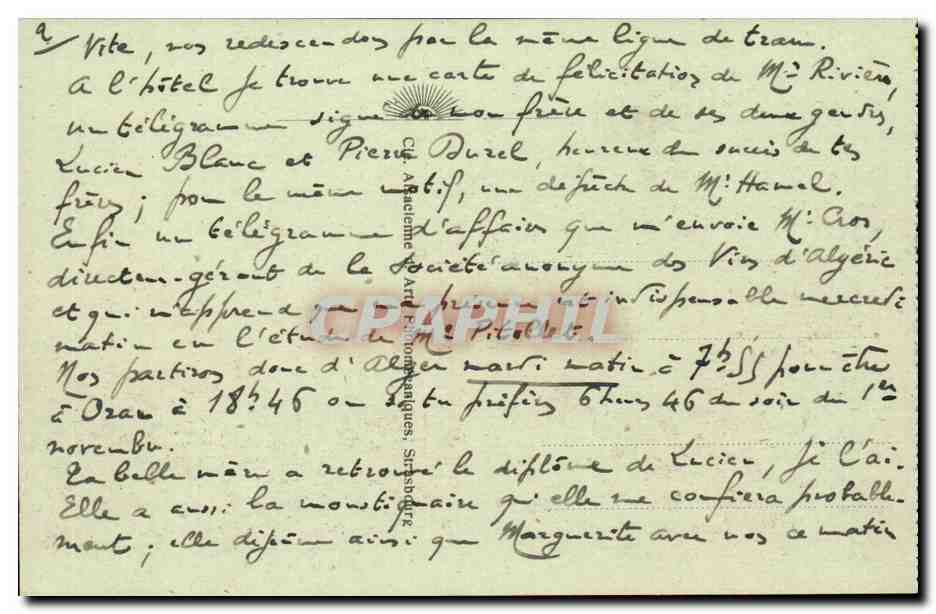 2/ Vite, nous redescendons par la même ligne de tram.
A l'hôtel je trouve une carte de félicitations de Mme Rivière,
un télégramme signé de mon frère et de ses deux gendres,
Lucien Blanc et Pierre Burel, heureux du succès de tes
frères ; pour le même motif, une dépêche de Mr Hamel.
Enfin un télégramme d'affaires que m'envoie Mr Cros,
directeur-gérant de la Société anonyme des Vins d'Algérie
et qui m'apprend que ma présence est indispensable mercredi
matin en l'étude de Me Pitollet.
Nous partirons donc d'Alger mardi matin à 7h55 pour être
à Oran à 18h46 ou si tu préfères 6 heures 46 du soir du 1er
novembre.
Ta belle mère a retrouvé le diplôme de Lucien, je l'ai.
Elle a aussi la moustiquaire qu'elle me confiera probable-
ment ; elle déjeune ainsi que Marguerite avec nous ce matin
Alsacienne Arts Photomécaniques, Strasbourg
CPAPHIL